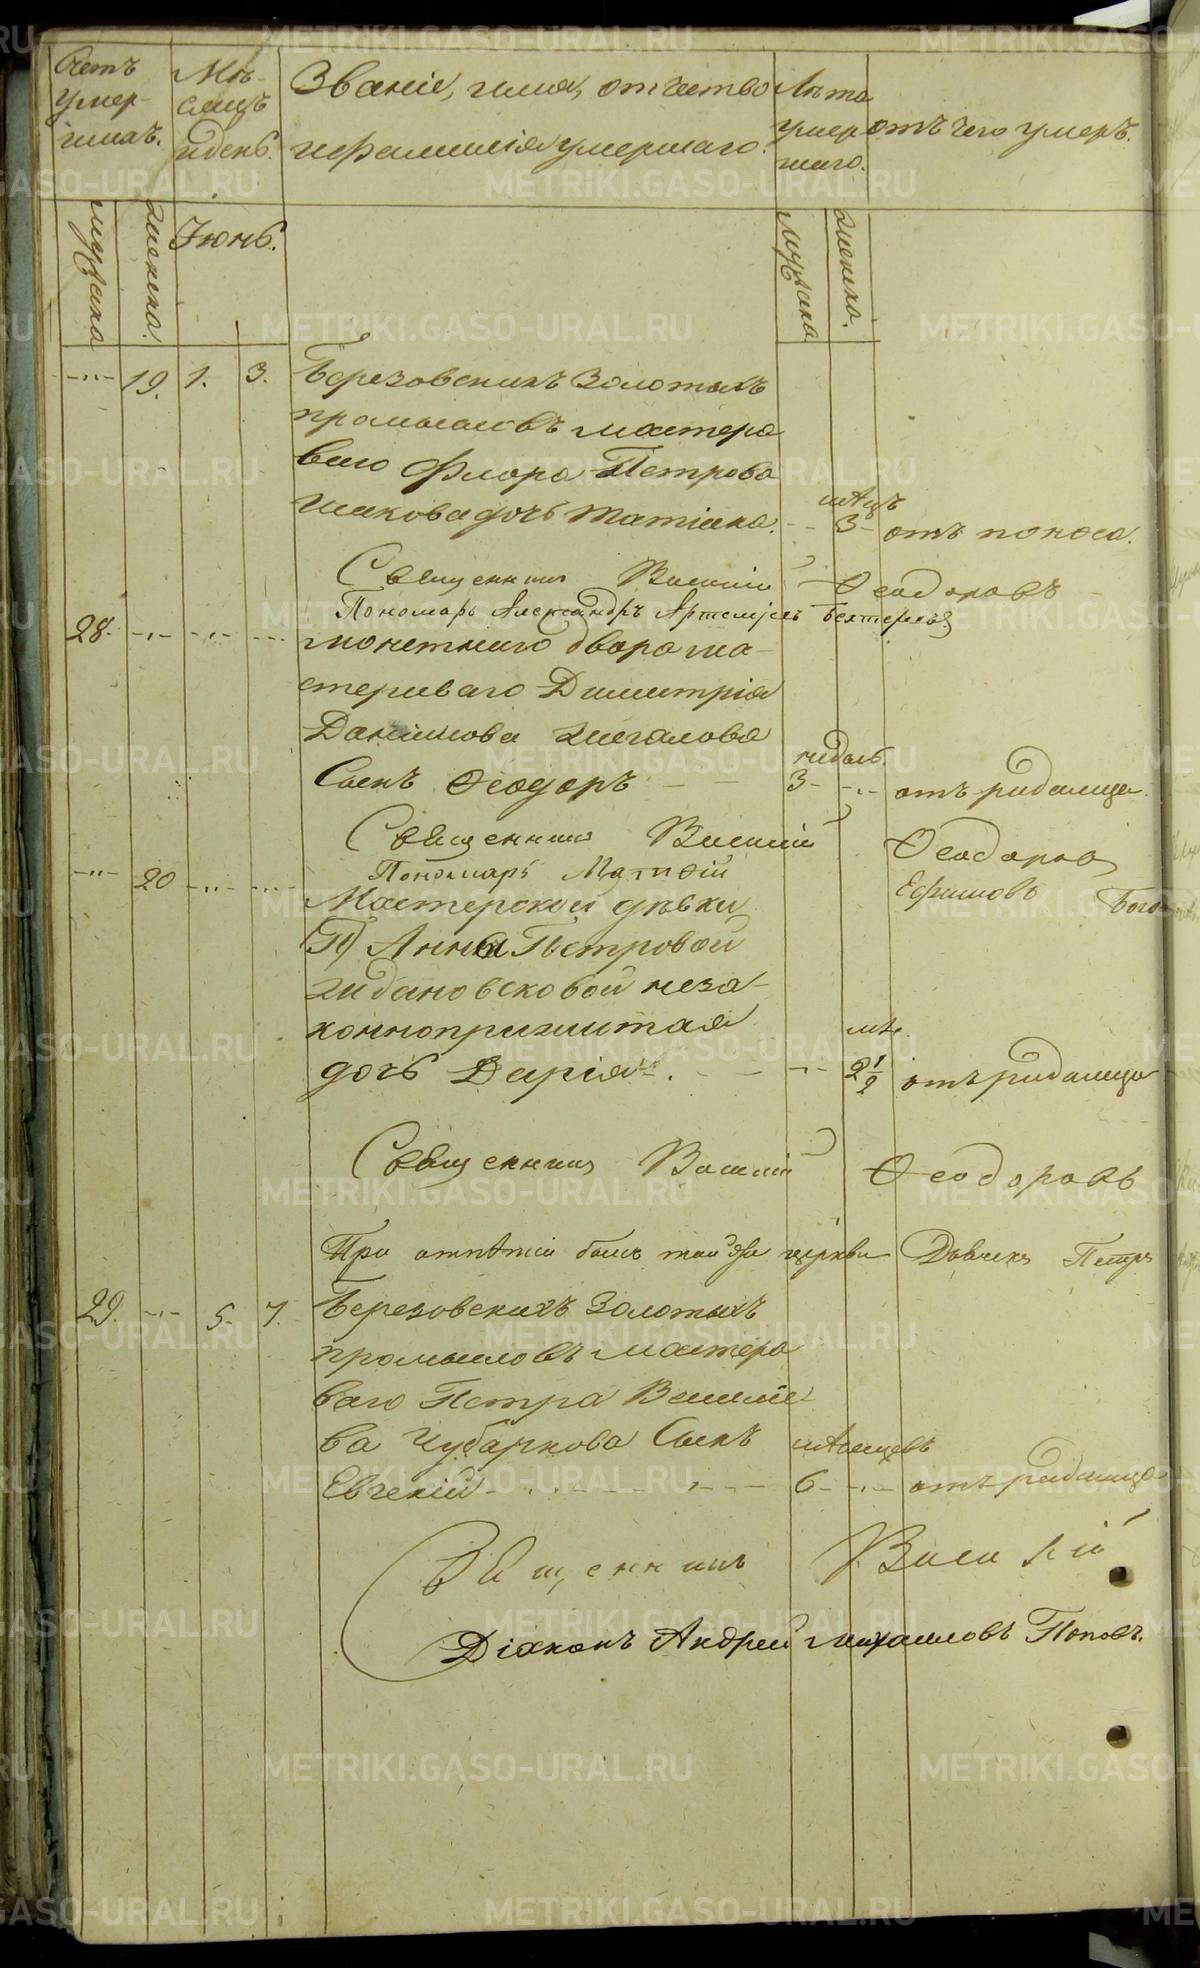 Счетъ умер-шихъ.
Мѣ-сяцъ и день.
Званіе, имя, отчество и фамилія умершаго.
Лѣта умер-шаго.
отъ чего умеръ.
мужеска
женска.
Іюнь.
мужеска
женска.
-"- 19. 1. 3. Березовскихъ Золотыхъ
промысловъ мастеро
ваго Флора Петрова
дочь Татіана. мѣсяцъ 3 отъ поноса.
Священникъ Василій Ѳеодоровъ
Пономарь Александръ Артемьевъ Бехтеревъ
28. -"- -"- -"- монетнаго двора ма-
стероваго Димитрія
Данилова
Сынъ Ѳеодоръ недѣль. 3 -"- отъ родимца
Священникъ Василій Ѳеодоровъ
Пономарь Матѳій Ефимовъ Бого
-"- 20 -"- -"- Мастерской дѣвки
Анны Петровой
неза-
коннoприжитая
дочь Дарія. лѣт. 2 1/2 отъ родимца
Священникъ Василій Ѳеодоровъ
При отпѣтіи былъ той же церкви Дьячекъ Петръ
29. -"- 5. 7. Березовскихъ Золотыхъ
промысловъ мастеро
ваго Петра Василье
ва Чубаркова Сынъ
Евгеній мѣсяцевъ 6 -"- отъ родимца
Священникъ Василій
Діаконъ Андрей Михаиловъ Поповъ.
METRIKI.GASO-URAL.RU